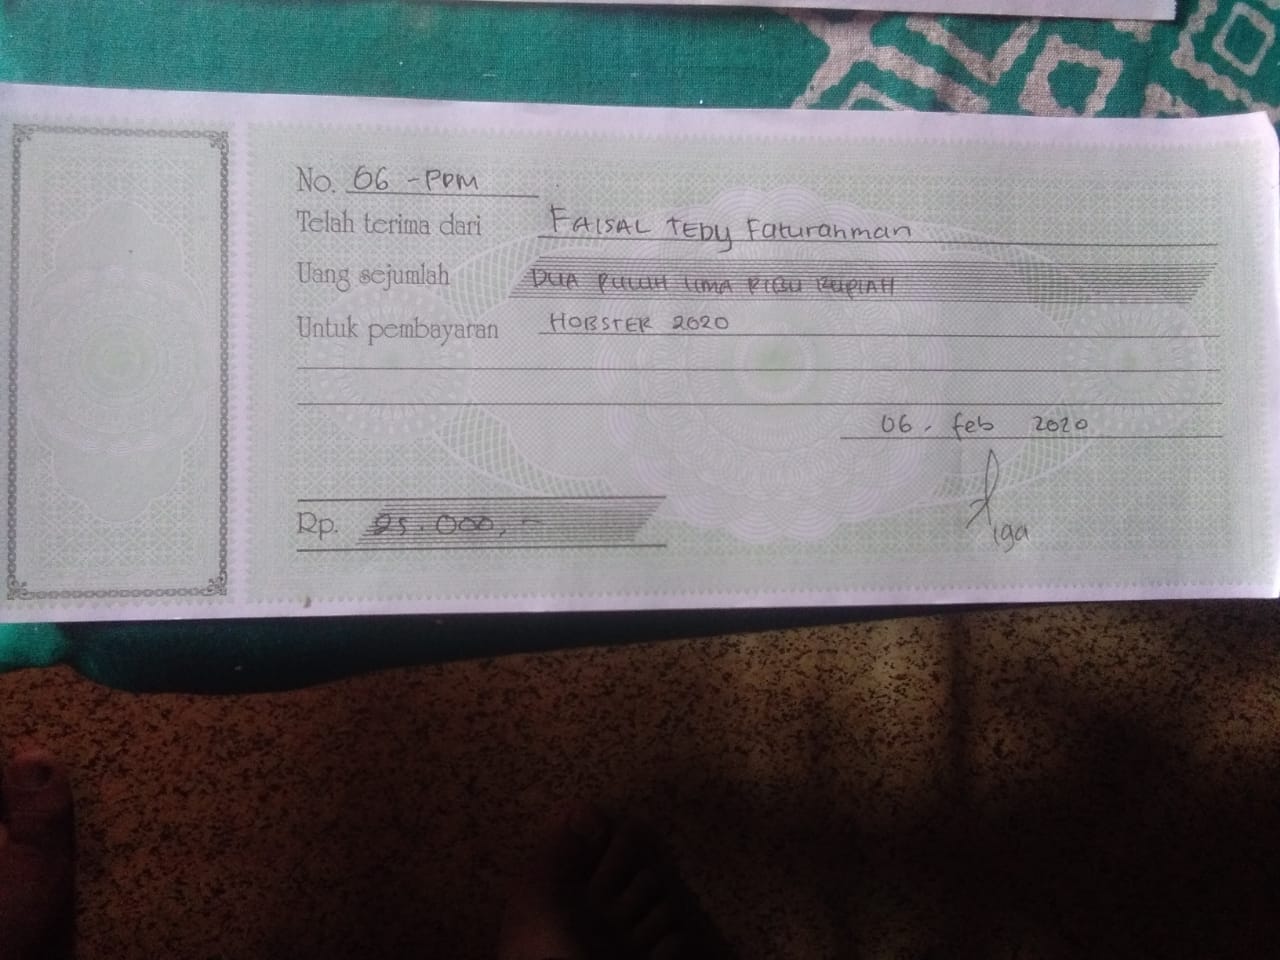 No. 06 - PDM
Telah terima dari FAISAL TEDy Faturahman
Uang sejumlah DUA PULUH LIMA RIBU RUPIAH
Untuk pembayaran HOBSTER 2020
06, feb 2020
Rp. 25.000,-
iga